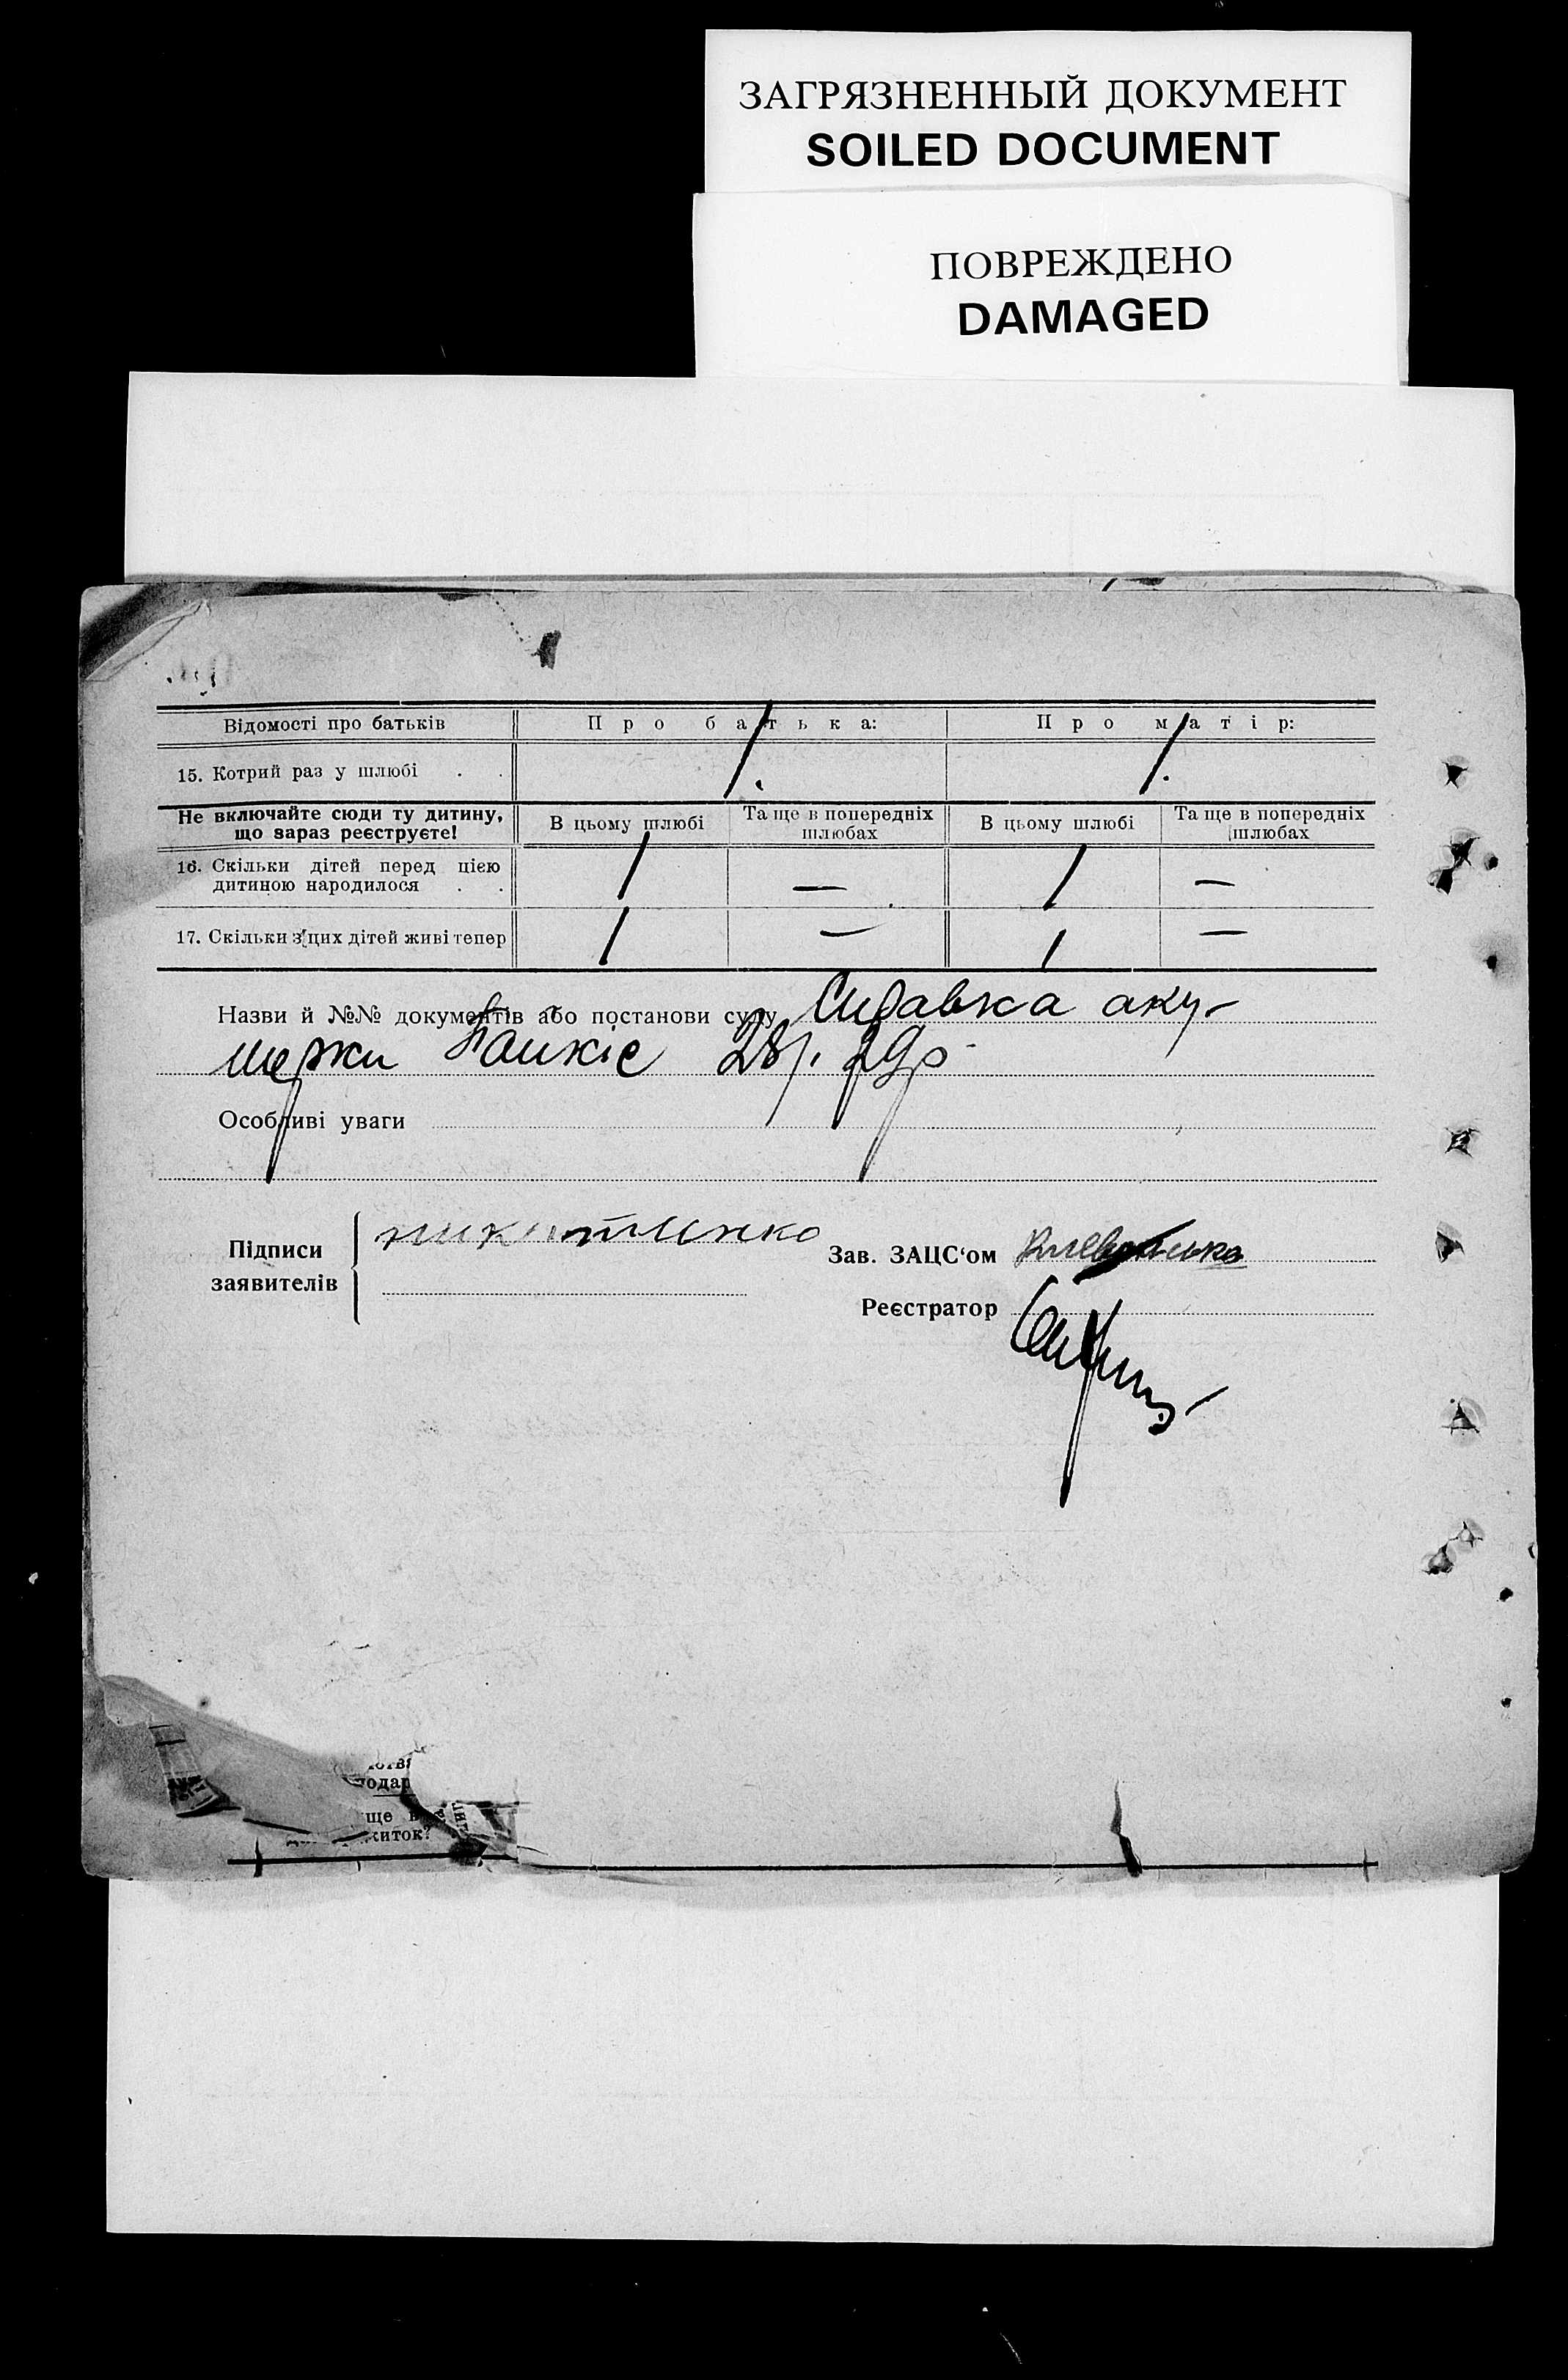 ЗАГРЯЗНЕННЫЙ ДОКУМЕНТ
SOILED DOCUMENT
ПОВРЕЖДЕНО
DAMAGED
Відомості про батьків Про батька: Про матір:
15. Котрий раз у шлюбі . . 1. 1.
Не включайте сюди ту дитину, що зараз реєструєте! В цьому шлюбі Та ще в попередніх шлюбах В цьому шлюбі Та ще в попередніх шлюбах
16. Скільки дітей перед цією дитиною народилося . . 1 — 1 —
17. Скільки з цих дітей живі тепер 1 — 1 —
Назви й №№ документів або постанови суду Справка аку-
шерки
Особливі уваги
Підписи заявителів Никитенко
Зав. ЗАЦС‘ом
Реєстратор
одар
ще в
житок?